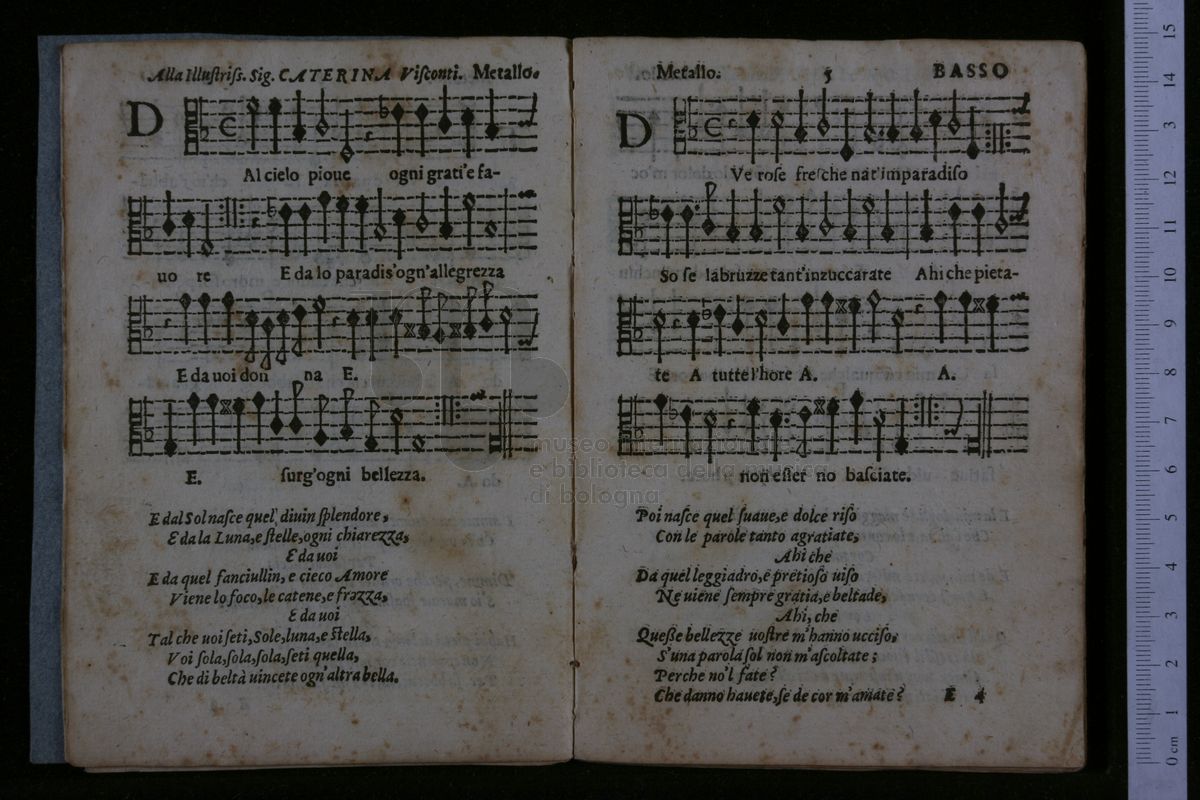 Alla Illuſtriſs. Sig. CATERINA Viſconti. Metallo.
D
Al cielo pioue ogni grati'e fa-
uo re E da lo paradis'ogn'allegrezza
E da uoi don na E.
E. ſurg'ogni bellezza.
E dal Sol naſce quel' diuin ſplendore,
E da la Luna,e ſtelle,ogni chiarezza,
E da uoi
E da quel fanciullin, e cieco Amore
Viene lo foco,le catene,e frezza,
E da uoi
Tal che uoi ſeti,Sole,luna,e ſtella,
Voi ſola,ſola,ſola,ſeti quella,
Che di beltà uincete ogn'altra bella.
Metallo. 5 BASSO
D
Ve roſe freſche nat'imparadiſo
So ſe labruzze tant'inzuccarate Ahi che pieta-
te A tutte l'hore A. A.
non eſſer no baſciate.
Poi naſce quel ſuaue,e dolce riſo
Con le parole tanto agratiate,
Ahi che
Da quel leggiadro,e pretioſo uiſo
Ne uiene ſempre gratia,e beltade,
Ahi, che
Queſte bellezze uoſtre m'hanno ucciſo,
S'una parola ſol non m'aſcoltate ;
Perche no'l fate ?
Che danno hauete,ſe de cor m'amate ? E 4
museo internazionale
e biblioteca della musica
di bologna
0 cm 1 2 3 4 5 6 7 8 9 10 11 12 13 14 15